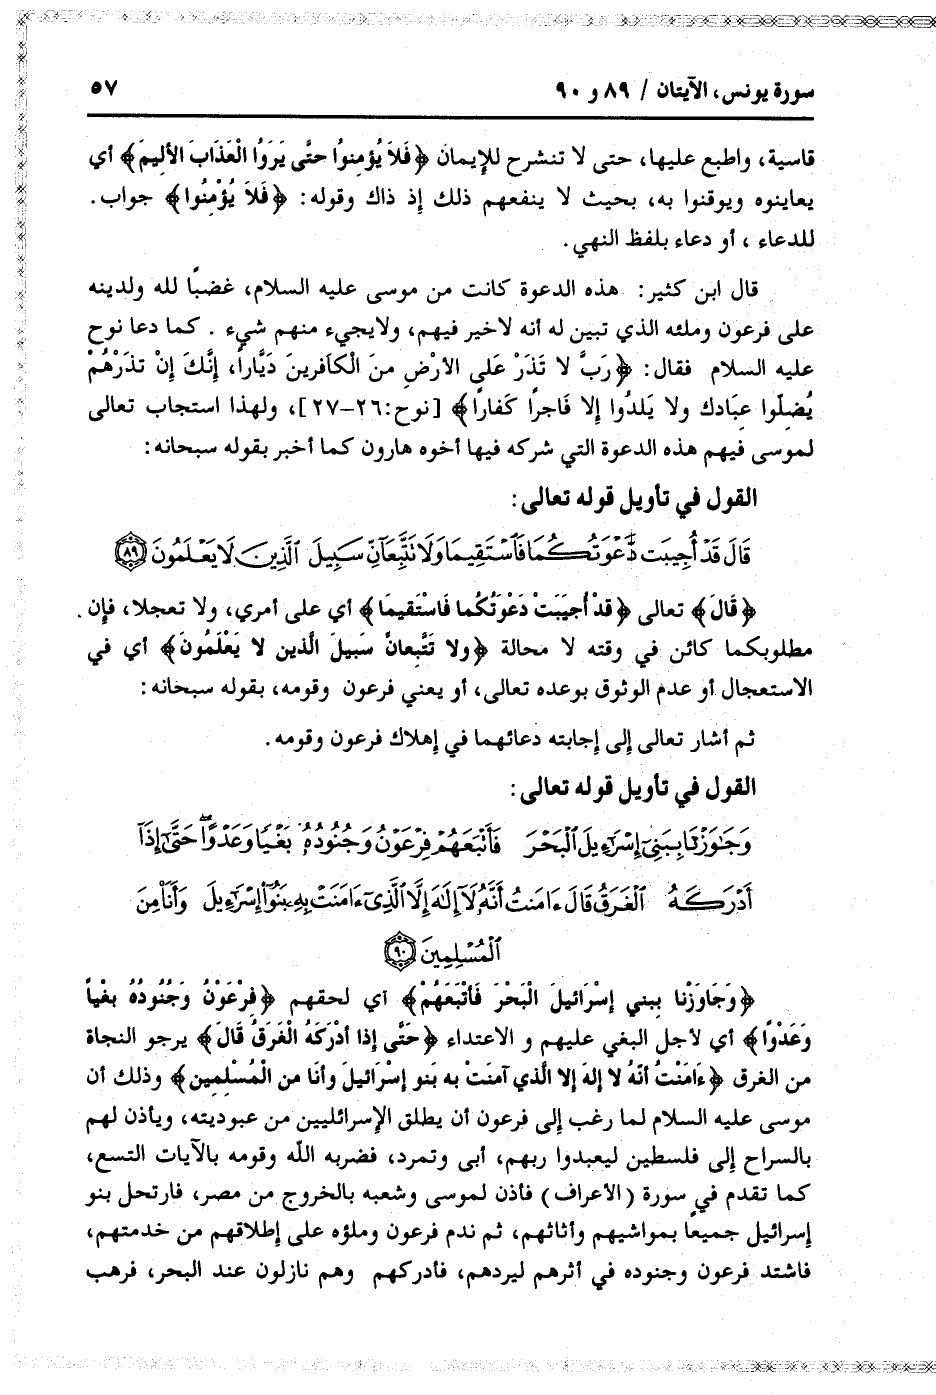 سورة يونس، الآيتان / ٨٩ و ٩٠ ٥٧
قاسية، واطبع عليها، حتى لا تنشرح للإيمان ﴿فَلاَ يُؤمِنوُا حتَّى يَرَوُا الْعَذَابَ الأليمَ﴾ أي
يعاينوه ويوقنوا به، بحيث لا ينفعهم ذلك إذ ذاك وقوله: ﴿فَلاَ يُؤْمِنُوا﴾ جواب.
للدعاء ، أو دعاء بلفظ النهي.
قال ابن كثير: هذه الدعوة كانت من موسى عليه السلام، غضبًا لله ولدينه
على فرعون وملئه الذي تبين له أنه لاخير فيهم، ولايجيء منهم شيء . كما دعا نوح
عليه السلام فقال: ﴿رَبَّ لا تَذَرْ عَلى الأرْضِ منَ الْكَافرينَ دَيَّاراً، إِنَّكَ إِنْ تذَرْهُمْ
يُضلّوا عبَادك ولا يَلدُوا إلا فَاجرًا كَفارًا﴾ [نوح:٢٦-٢٧]، ولهذا استجاب تعالى
لموسى فيهم هذه الدعوة التي شركه فيها أخوه هارون كما أخبر بقوله سبحانه:
القول في تأويل قوله تعالى:
قَالَ قَدْ أُجِيبَت دَّعْوَتُكُمَا فَاسْتَقِيمَا وَلَا تَتَّبِعَآنِّ سَبِيلَ الَّذِينَ لَا يَعْلَمُونَ ٨٩
﴿قَالَ﴾ تعالى ﴿قَدْ أُجيَبَتْ دَعْوَتُكُما فَاسْتَقيمَا﴾ أي على أمري، ولا تعجلا، فإن.
مطلوبكما كائن في وقته لا محالة ﴿ولا تَتَّبعانَّ سَبيلَ الَّذين لا يَعْلَمُونَ﴾ أي في
الاستعجال أو عدم الوثوق بوعده تعالى، أو يعني فرعون وقومه، بقوله سبحانه:
ثم أشار تعالى إلى إجابته دعائهما في إهلاك فرعون وقومه.
القول في تأويل قوله تعالى:
وَجَاوَزْنَا بِبَنِي إِسْرَاءِيلَ الْبَحْرَ فَأَتْبَعَهُمْ فِرْعَوْنُ وَجُنُودُهُ بَغْيًا وَعَدْوًا حَتَّى إِذَا
أَدْرَكَهُ الْغَرَقُ قَالَ ءَامَنتُ أَنَّهُ لَا إِلَهَ إِلَّا الَّذِي ءَامَنَتْ بِهِ بَنُوا إِسْرَاءِيلَ وَأَنَا مِنَ
الْمُسْلِمِينَ ٩٠
﴿وَجَاوَزْنا ببني إسْرائيلَ الْبَحْرَ فَأَتْبَعَهُمْ﴾ أي لحقهم ﴿فِرْعَوْنُ وَجُنُودُهُ بغْياً
وَعَدْوًا﴾ أي لأجل البغي عليهم و الاعتداء ﴿حَتَّى إذا أدْرَكَهُ الْغَرَقُ قَالَ﴾ يرجو النجاة
من الغرق ﴿ءَامَنْتُ أنّهُ لا إلهَ إلا الَّذي آمنَتْ به بَنو إسْرائيلَ وأنَا من الْمُسْلمِين﴾ وذلك أن
موسى عليه السلام لما رغب إلى فرعون أن يطلق الإسرائليين من عبوديته، ويأذن لهم
بالسراح إلى فلسطين ليعبدوا ربهم، أبى وتمرد، فضربه اللّه وقومه بالآيات التسع،
كما تقدم في سورة (الأعراف) فأذن لموسى وشعبه بالخروج من مصر، فارتحل بنو
إسرائيل جميعاً بمواشيهم وأثاثهم، ثم ندم فرعون وملؤه على إطلاقهم من خدمتهم،
فاشتد فرعون وجنوده في أثرهم ليردهم، فأدركهم وهم نازلون عند البحر، فرهب